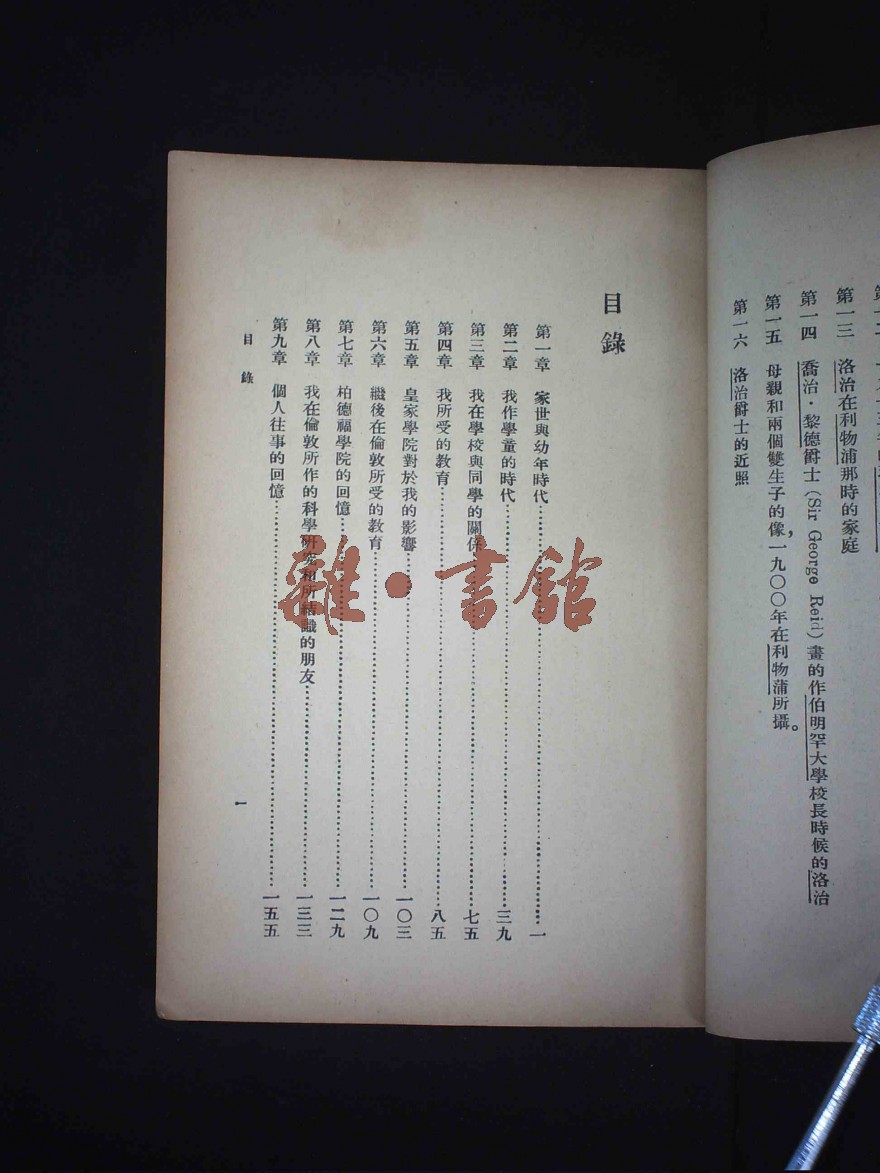 第一三　洛治在利物浦那時的家庭
第一四　喬治·黎德爵士(Sir George Reid)畫的作伯明罕大學校長時候的洛治
第一五　母親和兩個雙生子的像，一九〇〇年在利物蒲所攝。
第一六　洛治爵士的近照
目錄
第一章　家世與幼年時代……一
第二章　我作學童的時代……三九
第三章　我在學校與同學的關係……七五
第四章　我所受的教育……八五
第五章　皇家學院對於我的影響……一〇三
第六章　繼後在倫敦所受的教育……一〇九
第七章　柏德福學院的回憶……一二九
第八章　我在倫敦所作的科學研究和所結識的朋友……一三三
第九章　個人往事的回憶……一五五
目錄
一
雜·書館